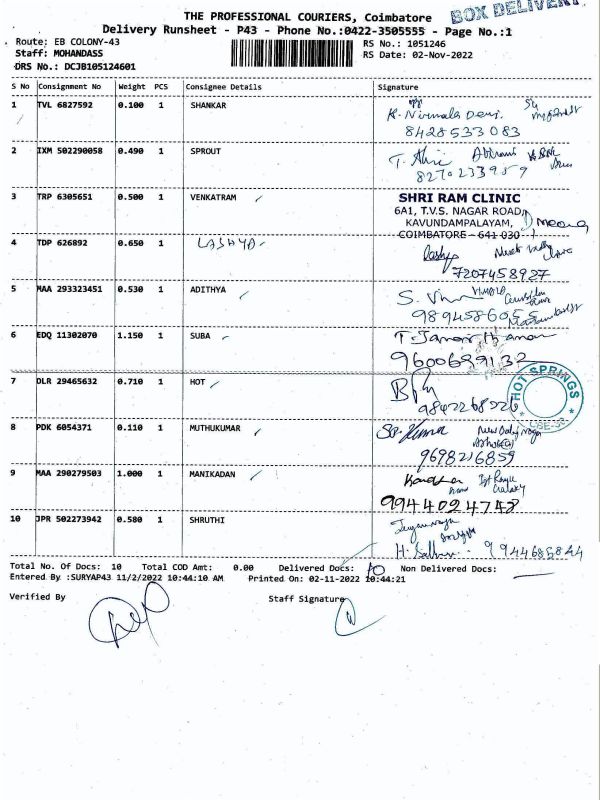 THE PROFESSIONAL COURIERS, Coimbatore
BOX DELIVERY
Delivery Runsheet - P43 - Phone No.:0422-3505555 - Page No.:1
Route: EB COLONY-43
RS No.: 1051246
Staff: MOHANDASS
RS Date: 02-Nov-2022
DRS No.: DCJB105124601
S No Consignment No Weight PCS Consignee Details Signature
1 TVL 6827592 0.100 1 SHANKAR
K. Nirmala Devi.
8428533083
2 IXM 502290058 0.490 1 SPROUT
8270233959
3 TRP 6305651 0.500 1 VENKATRAM
SHRI RAM CLINIC
6A1, T.V.S. NAGAR ROAD,
KAVUNDAMPALAYAM,
COIMBATORE - 641 030
4 TDP 626892 0.650 1 LASHYA
7207458927
5 MAA 293323451 0.530 1 ADITHYA
9894586055
6 EDQ 11302070 1.150 1 SUBA
9600689132
7 DLR 29465632 0.710 1 HOT
HOT SPRINGS
9842268226
8 PDK 6054371 0.110 1 MUTHUKUMAR
9698216859
9 MAA 290279503 1.000 1 MANIKADAN
9944024748
10 JPR 502273942 0.580 1 SHRUTHI
9944685844
Total No. Of Docs: 10 Total COD Amt: 0.00 Delivered Docs: 10 Non Delivered Docs:
Entered By :SURYAP43 11/2/2022 10:44:10 AM Printed On: 02-11-2022 10:44:21
Verified By Staff Signature